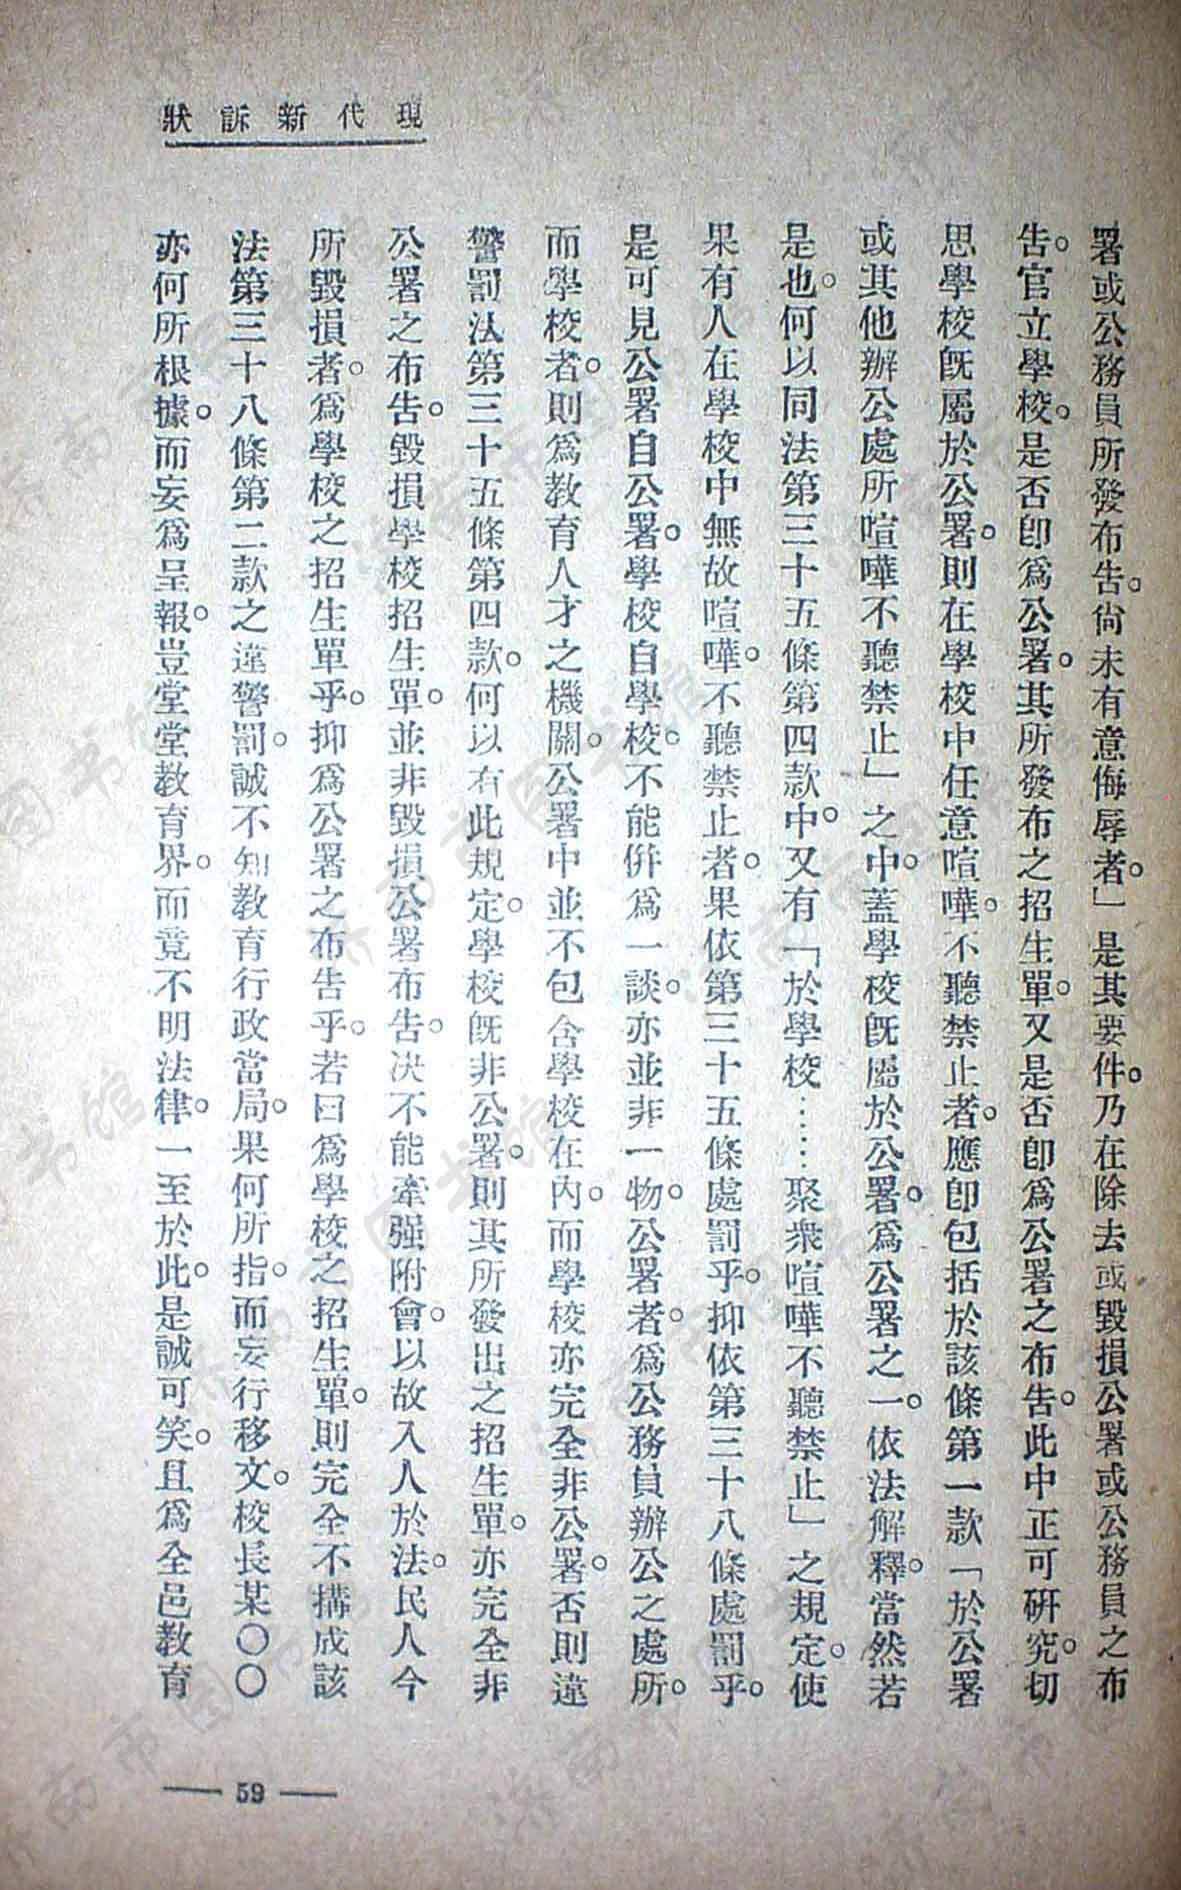 現代新訴狀
署或公務員所發布告。尙未有意侮辱者。」是其要件。乃在除去或毀損公署或公務員之布
告。官立學校。是否卽爲公署。其所發布之招生單。又是否卽爲公署之布告。此中正可硏究。切
思學校旣屬於公署。則在學校中任意喧嘩。不聽禁止者。應卽包括於該條第一款「於公署
或其他辦公處所喧嘩不聽禁止」之中。蓋學校旣屬於公署。爲公署之一。依法解釋。當然若
是也。何以同法第三十五條第四款中。又有「於學校……聚衆喧嘩不聽禁止」之規定。使
果有人在學校中無故喧嘩。不聽禁止者。果依第三十五條處罰乎。抑依第三十八條處罰乎。
是可見公署自公署。學校自學校。不能併爲一談。亦並非一物。公署者。爲公務員辦公之處所。
而學校者。則爲教育人才之機關。公署中並不包含學校在內。而學校亦完全非公署。否則違
警罰法第三十五條第四款。何以有此規定。學校旣非公署。則其所發出之招生單。亦完全非
公署之布告。毀損學校招生單。並非毀損公署布告。决不能牽强附會。以故入人於法。民人今
所毀損者。爲學校之招生單乎。抑爲公署之布告乎。若曰爲學校之招生單。則完全不搆成該
法第三十八條第二款之違警罰。誠不知教育行政當局。果何所指。而妄行移文。校長某〇〇
亦何所根據。而妄爲呈報。豈堂堂教育界。而竟不明法律。一至於此。是誠可笑。且爲全邑教育
— 59 —
济南市图书馆